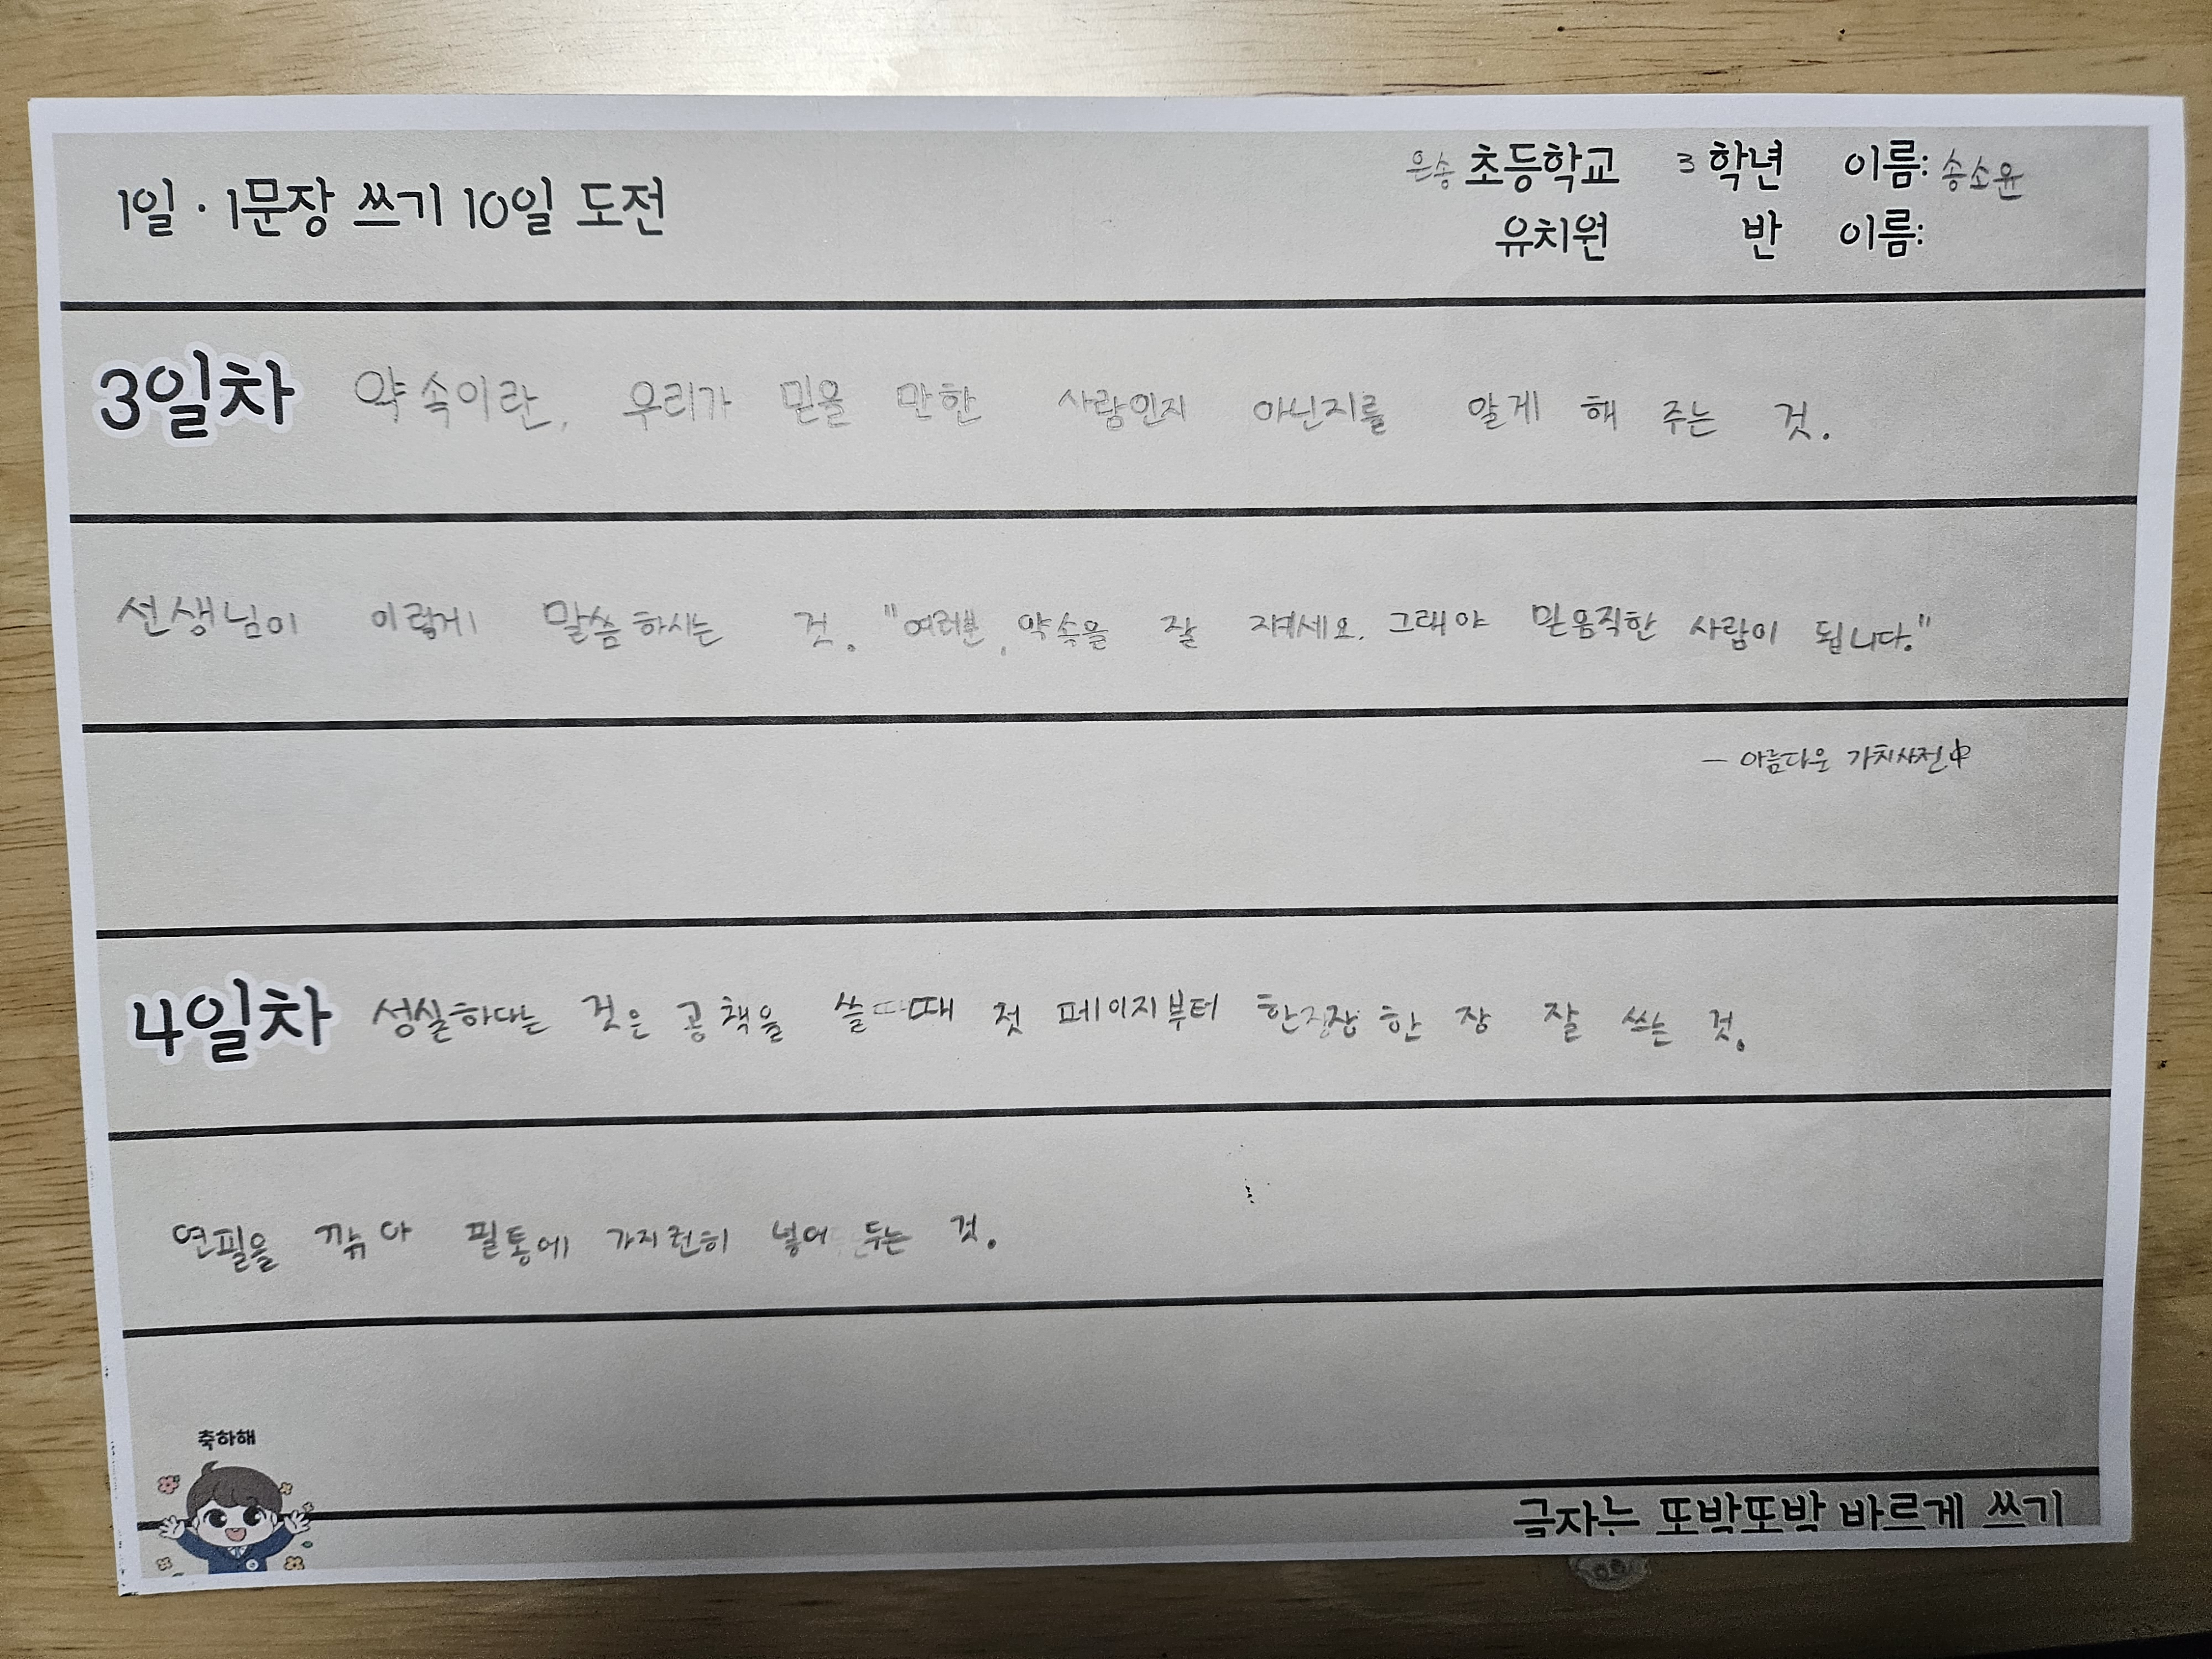 1일·1문장 쓰기 10일 도전
은송 초등학교 3학년 이름: 송소윤
유치원 반 이름:
3일차 약속이란, 우리가 믿을 만한 사람인지 아닌지를 알게 해 주는 것.
선생님이 이렇게 말씀하시는 것. "여러분, 약속을 잘 지켜세요. 그래야 믿음직한 사람이 됩니다."
– 아름다운 가치사전中
4일차 성실하다는 것은 공책을 쓸 때 첫 페이지부터 한 장 한 장 잘 쓰는 것.
연필을 깎아 필통에 가지런히 넣어 두는 것.
축하해
글자는 또박또박 바르게 쓰기